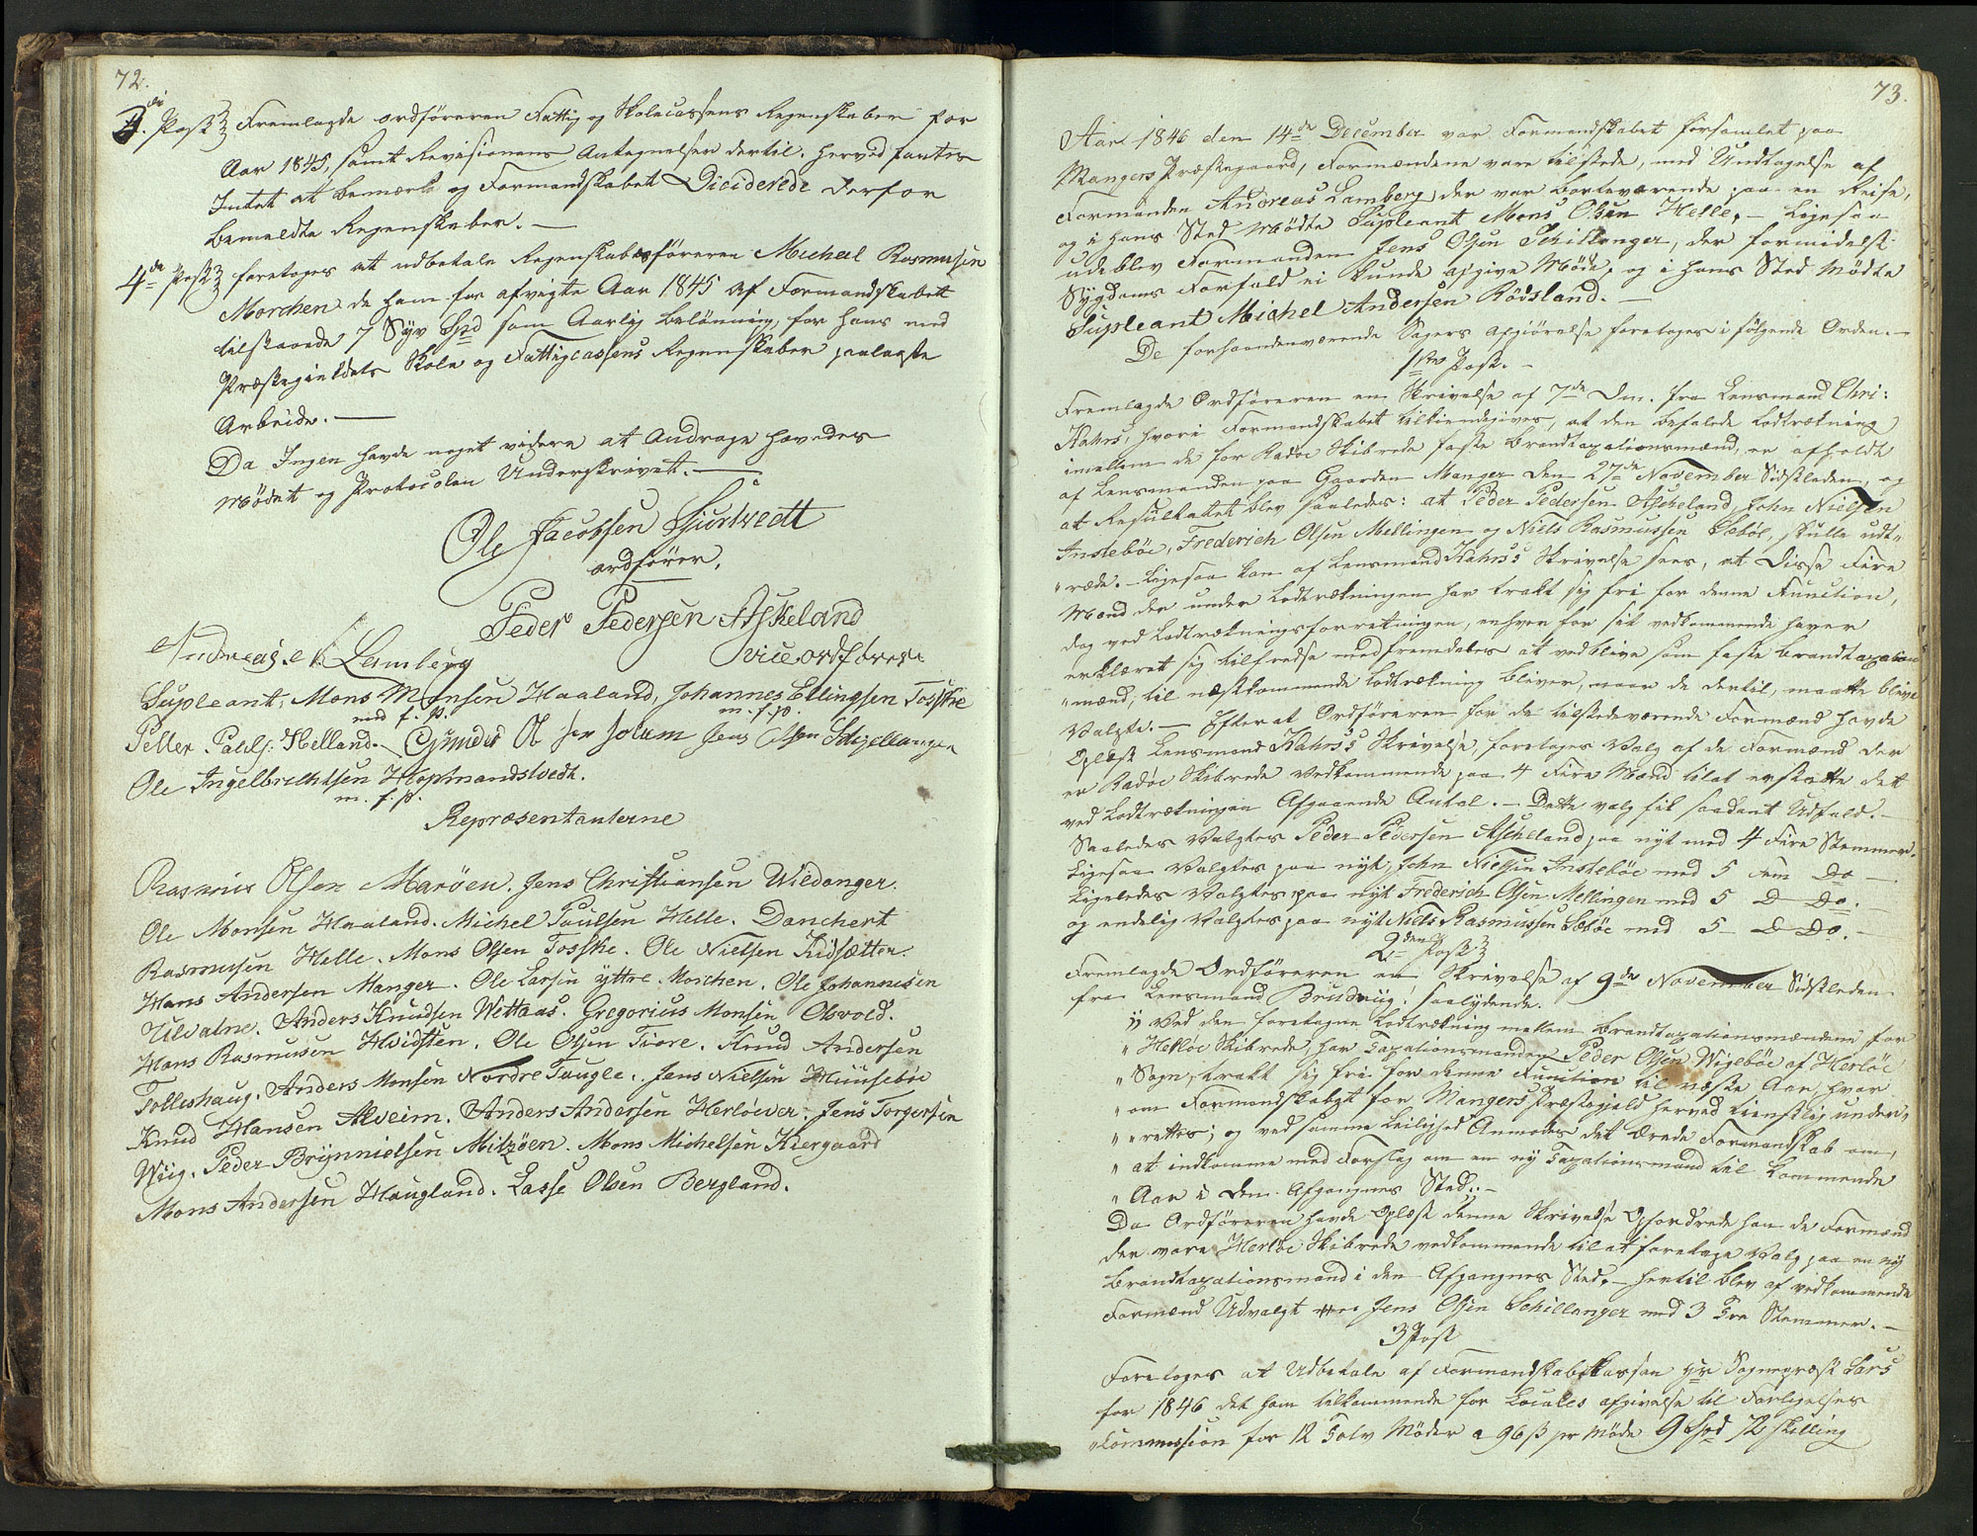 72.
3die Post Fremlagde ordføreren Fattig og Skolecassens Regenskaber for
Aar 1845, samt Revisionens Antegnelser dertil. Herved fantes
Intet at bemærke og Formandskabet Deciderede derfor
bemeldte Regenskaber. —
4de Post foretoges at udbetale Regenskabsføreren Micheel Rasmusen
Morchen de ham for afvigte Aar 1845 af Formandskabet
tilstaaede 7 Syv Spd som Aarlig belønning, for hans med
Præstegieldets Skole og Fattigcassens Regenskaber paalagte
Arbeide. —
Da Ingen havde noget videre at Andrage hævedes
Mødet og Protocolen Underskrivet. —
Ole Jacobsen Sjurtvedt
ordfører.
Peder Pedersen Askeland
viceordfører
Andreas Lamberg
Supleant, Mons Monsen Haaland, Johannes Ellingsen Toskke
med f. p. m. f. p.
Petter Palls: Helland. Solum Jens Olsen Schjellanger
Ole Ingelbrichtsen Hopmandstvedt.
m. f. p.
Repræsentanterne
Rasmus Olsen Marøen. Jens Christiansen Wildanger.
Ole Monsen Haaland. Michel Paulsen Helle. Danchert
Rasmusen Helle. Mons Olsen Tosske. Ole Nielsen Kidsætter.
Hans Andersen Manger. Ole Larsen yttre Morchen. Ole Johannesen
Ulvatne. Anders Knudsen Wettaas. Gregorius Monsen Olsvold.
Hans Rasmusen Hvidsten. Ole Olsen Tiore. Knud Andersen
Tolleshaug. Anders Monsen Nordre Taugle. Jens Nielsen Huusebøe
Knud Hansen Alveim. Anders Andersen Herløever. Jens Torgersen
Wiig. Peder Brynnielsen Miltzøen. Mons Michelsen Kiergaard
Mons Andersen Haugland. Lasse Olsen Bergland.
73.
Aar 1846 den 14de December var Formandskabet forsamlet paa
Mangers Præstegaard, Formændene vare tilstede, med Undtagelse af
Formanden Andreas Lamberg, der var bortværende paa en Reise,
og i hans Sted mødte Supleant Mons Olsen Helle, — Ligesaa
udeblev Formanden Jens Olsen Schillanger, der formedelst
Sygdoms Forfald ei kunde afgive Møde, og i hans Sted Mødte
Supleant Michel Andersen Rødsland. —
De forhaandenværende Sagers afgiørelse foretoges i følgende Orden. —
1ste Post. —
Fremlagde Ordføreren en Skrivelse af 7de Dec. fra Lensmand Chri:
Kahrs, hvori Formandskabet tilkiendegives, at den befalede Lodtrækning
imellem de for Radøe Skibrede faste Brandtaxationsmænd, er afholdt
af Lensmanden paa Gaarden Manger den 27de November Sidstleden, og
at Resultatet blev saaledes: at Peder Pedersen Ascheland, John Nielsen
Instebøe, Frederich Olsen Mellingen og Niels Rasmussen Sæbøe, skulle udt-
„ræde. — Ligesaa kan af Lensmand Kahrs's Skrivelse sees, at disse Fire
Mænd der under Lodtrækningen har trakt sig fri for denne Function,
dog ved Lodtrækningsforretningen, enhver for sit vedkommende haver
erklæret sig tilfredse med fremdeles at vedblive som faste Brandtaxations
„mænd, til næstkommende Lodtrækning bliver, naar de dertil, maatte blive
Valgte. — Efter at Ordføreren for de tilstedeværende Formænd havde
Oplæst Lensmand Kahrs's Skrivelse, foretoges Valg af de Formænd der
er Radøe Skibrede vedkommende paa 4 Fire Mænd til at erstatte det
ved Lodtrækningen Afgaaende Antal. — Dette valg fik saadant Udfald. —
Saaledes Valgtes Peder Pedersen Ascheland paa nyt med 4 Fire Stemmer.
Ligesaa Valgtes paa nyt, John Nielsen Instebøe med 5 fem Do —
Ligeledes Valgtes paa nyt Frederich Olsen Mellingen med 5 D Do.
og endelig Valgtes paa nyt Niels Rasmussen Sæbøe med 5 D Do. —
2den Post
Fremlagde Ordføreren en Skrivelse af 9de November Sidstleden
fra Lensmand Brudvig, saalydende.
„ Ved den foretagne Lodtrækning mellem Brandtaxationsmændene for
„ Herløe Skibrede, har Taxationsmanden Peder Olsen Wigebøe af Herløe
„ Sogn, trakt sig fri for denne Function til næste Aar, hvor
„ om Formandskabet for Mangers Præstegjeld herved tienstlig under-
„ „rettes; og ved samme Leilighed Anmodes det Ærede Formandskab om,
„ at indkomme med Forslag om en ny Taxationsmand til kommende
„ Aar i den Afgangnes Sted. —
Da Ordføreren havde Oplæst denne Skrivelse Opfordrede han de Formænd
der vare Herløe Skibrede vedkommende til at foretage Valg paa en ny
Brandtaxationsmand i den Afgangnes Sted, — hertil blev af vedkommende
Formænd Udvalgt Jens Olsen Schillanger med 3 Tre Stemmer. —
3 Post
Foretoges at Udbetale af Formandskabskassen Hr Sognepræst Lars
for 1846 det ham tilkommende for Locales afgivelse til Forligelses
Commission for 12 Tolv Møder a 96 ß pr Møde 9 Spd 72 skilling